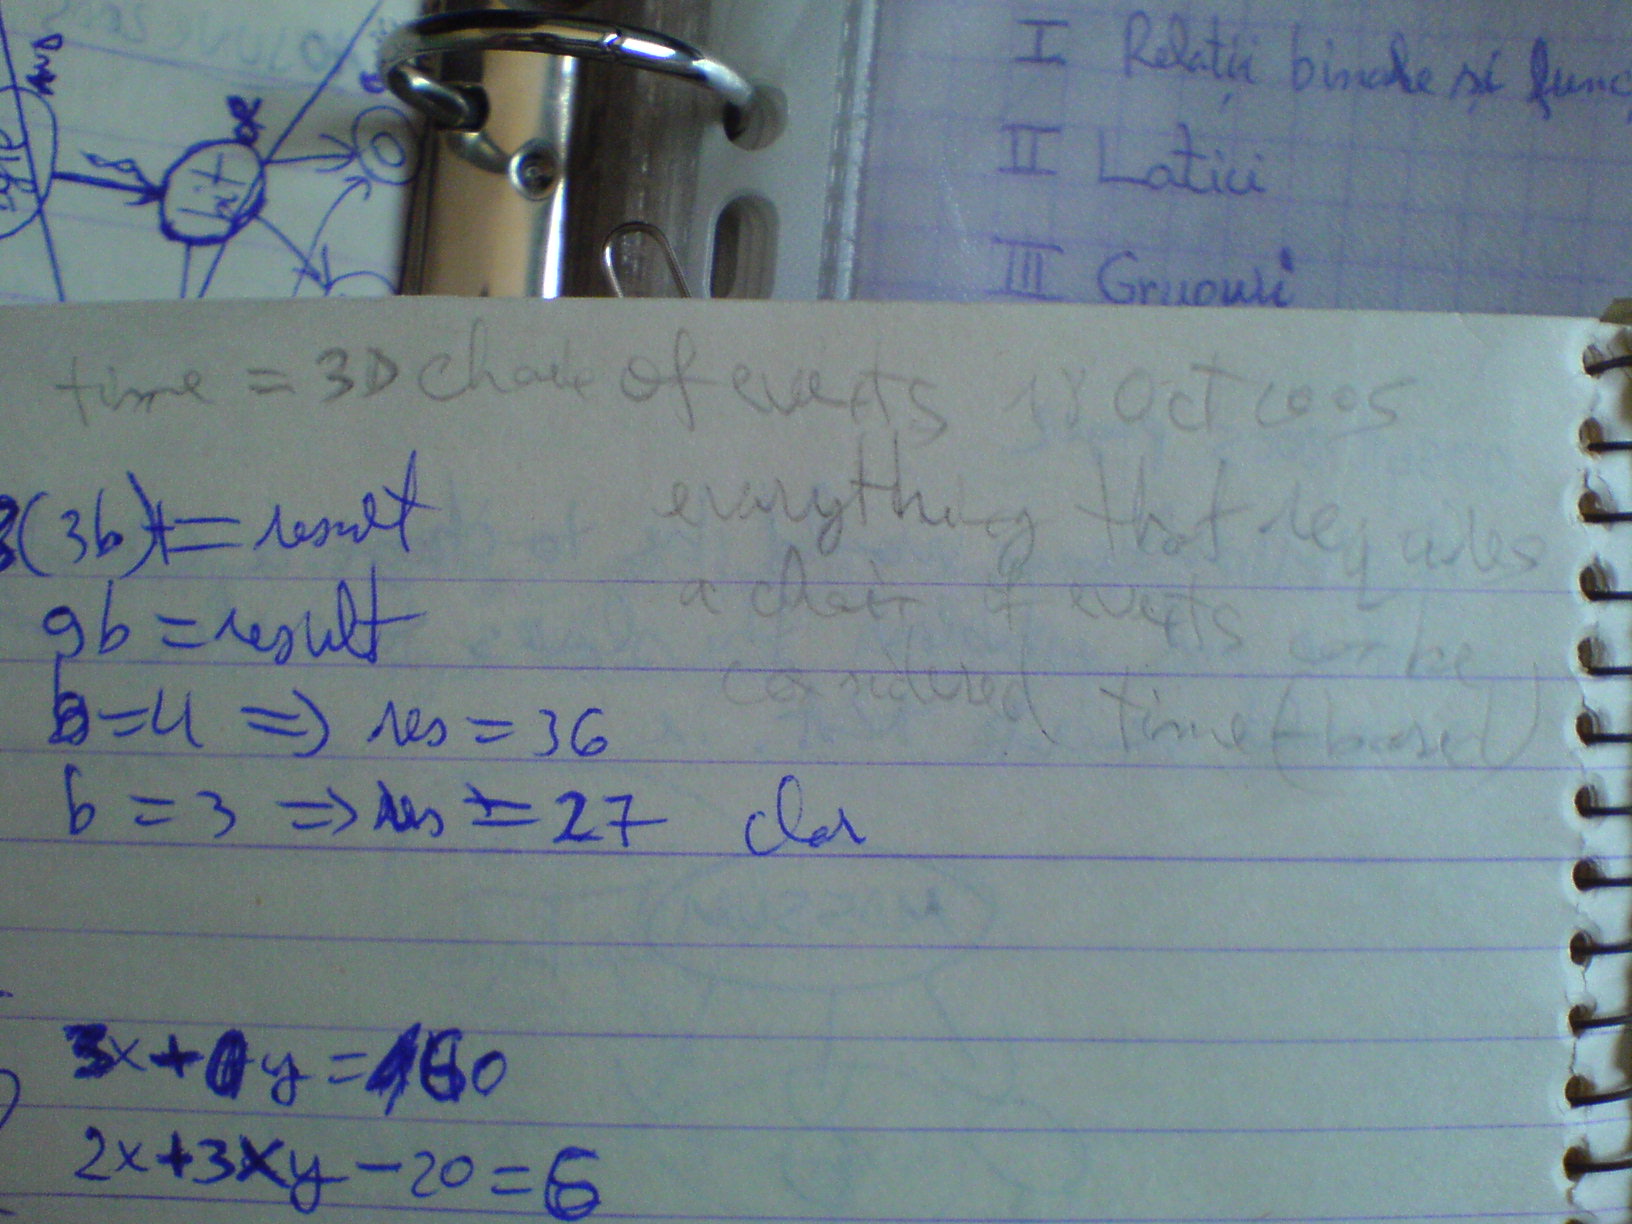 AND
OR
I Relații binare și func
II Latici
III Grupuri
time = 3D chain of events 18 Oct 2005
3(3b)+= result
everything that requires
a chain of events can be
considered time(-based)
9b = result
b=4 => res = 36
b = 3 => res = 27
3x+1y=160
2x+3xy-20=6